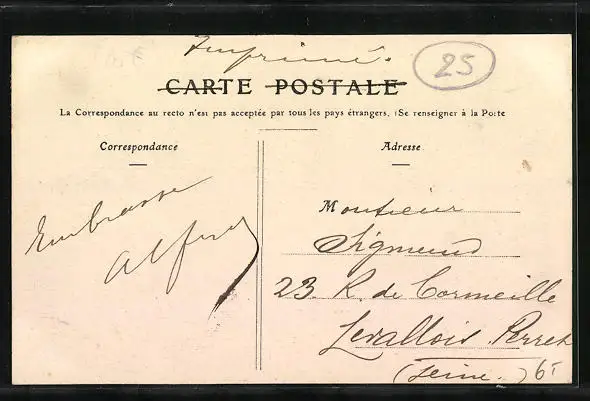 Imprimé.
25
CARTE POSTALE
La Correspondance au recto n'est pas acceptée par tous les pays étrangers. (Se renseigner à la Poste
Correspondance
Embrasse
Alfred
Adresse
Monsieur
Sigmund
23. R. de Cormeille
Levallois. Perret
(Seine.)